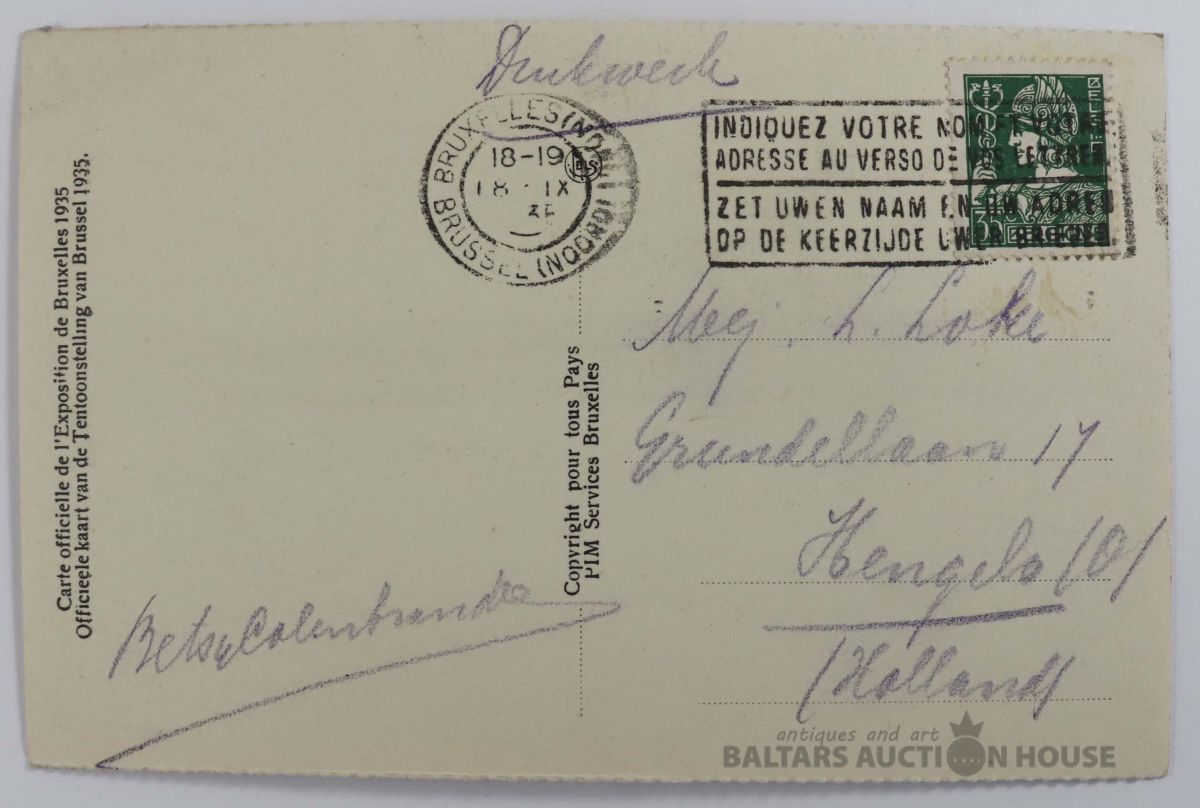 Drukwerk
BRUXELLES (NORD)
18-19
18 IX 35
BRUSSEL (NOORD)
INDIQUEZ VOTRE NOM ET VOTRE
ADRESSE AU VERSO DE VOS LETTRES
ZET UWEN NAAM EN UW ADRES
OP DE KEERZIJDE UWER BRIEVEN
BELGIË
35
BELGIQUE
Carte officielle de l'Exposition de Bruxelles 1935
Officieele kaart van de Tentoonstelling van Brussel 1935.
Copyright pour tous Pays
PIM Services Bruxelles
Mej. L. Loke
Grundellaan 17
Hengelo (O)
(Holland)
Betsy Colenbrander
antiques and art
BALTARS AUCTION HOUSE